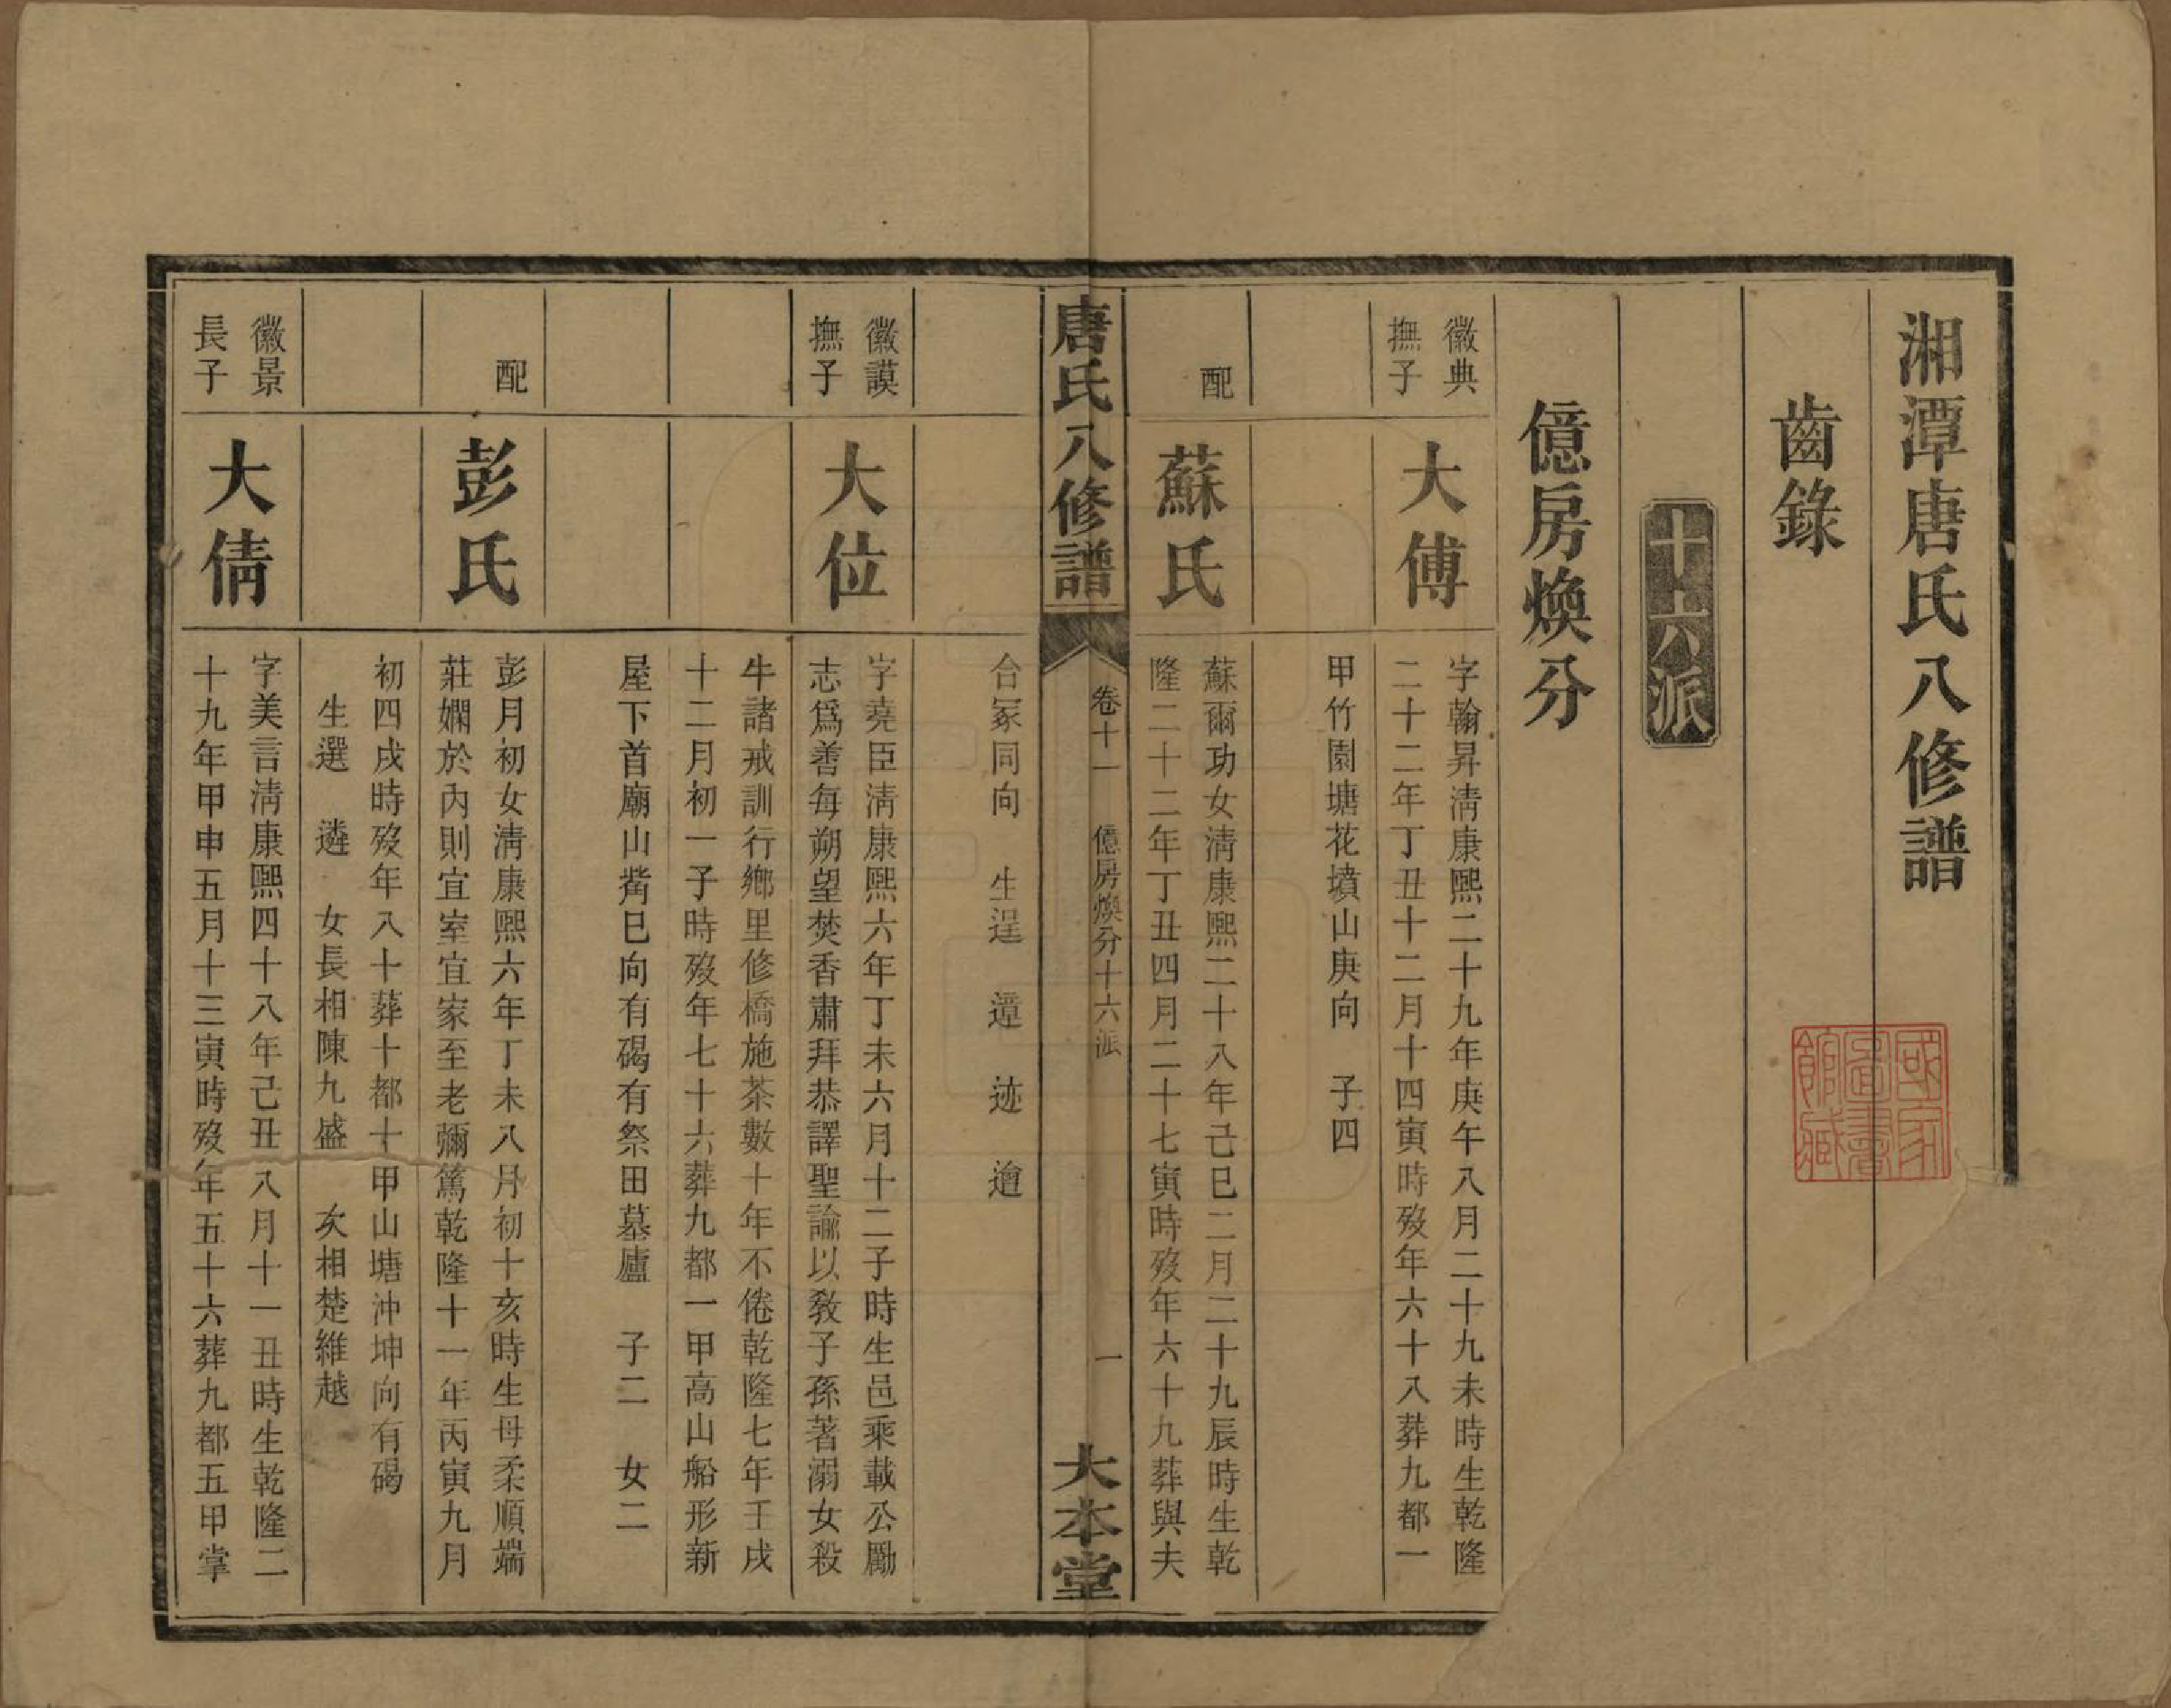 湘潭唐氏八修譜
齒錄
十六派
億房煥分
徽典
撫子
大傅
字翰昇淸康熙二十九年庚午八月二十九未時生乾隆
二十二年丁丑十二月十四寅時歿年六十八葬九都一
甲竹園塘花墳山庚向 子四
配
蘇氏
蘇爾功女淸康熙二十八年己巳二月二十九辰時生乾
隆二十二年丁丑四月二十七寅時歿年六十九葬與夫
唐氏八修譜
卷十一 億房煥分十六派
一
大本堂
合冢同向 生逞 遧 迹 邅
徽謨
撫子
大位
字堯臣淸康熙六年丁未六月十二子時生邑乘載公勵
志爲善每朔望焚香肅拜恭譯聖諭以敎子孫著溺女殺
牛諸戒訓行鄉里修橋施茶數十年不倦乾隆七年壬戌
十二月初一子時歿年七十六葬九都一甲高山船形新
屋下首廟山觜巳向有碣有祭田墓廬 子二 女二
配
彭氏
彭月初女淸康熙六年丁未八月初十亥時生母柔順端
莊嫻於內則宜室宜家至老彌篤乾隆十一年丙寅九月
初四戌時歿年八十葬十都十甲山塘沖坤向有碣
生選 遴 女長相陳九盛 次相楚維越
徽景
長子
大倩
字美言淸康熙四十八年己丑八月十一丑時生乾隆二
十九年甲申五月十三寅時歿年五十六葬九都五甲掌
國家
圖書
館藏